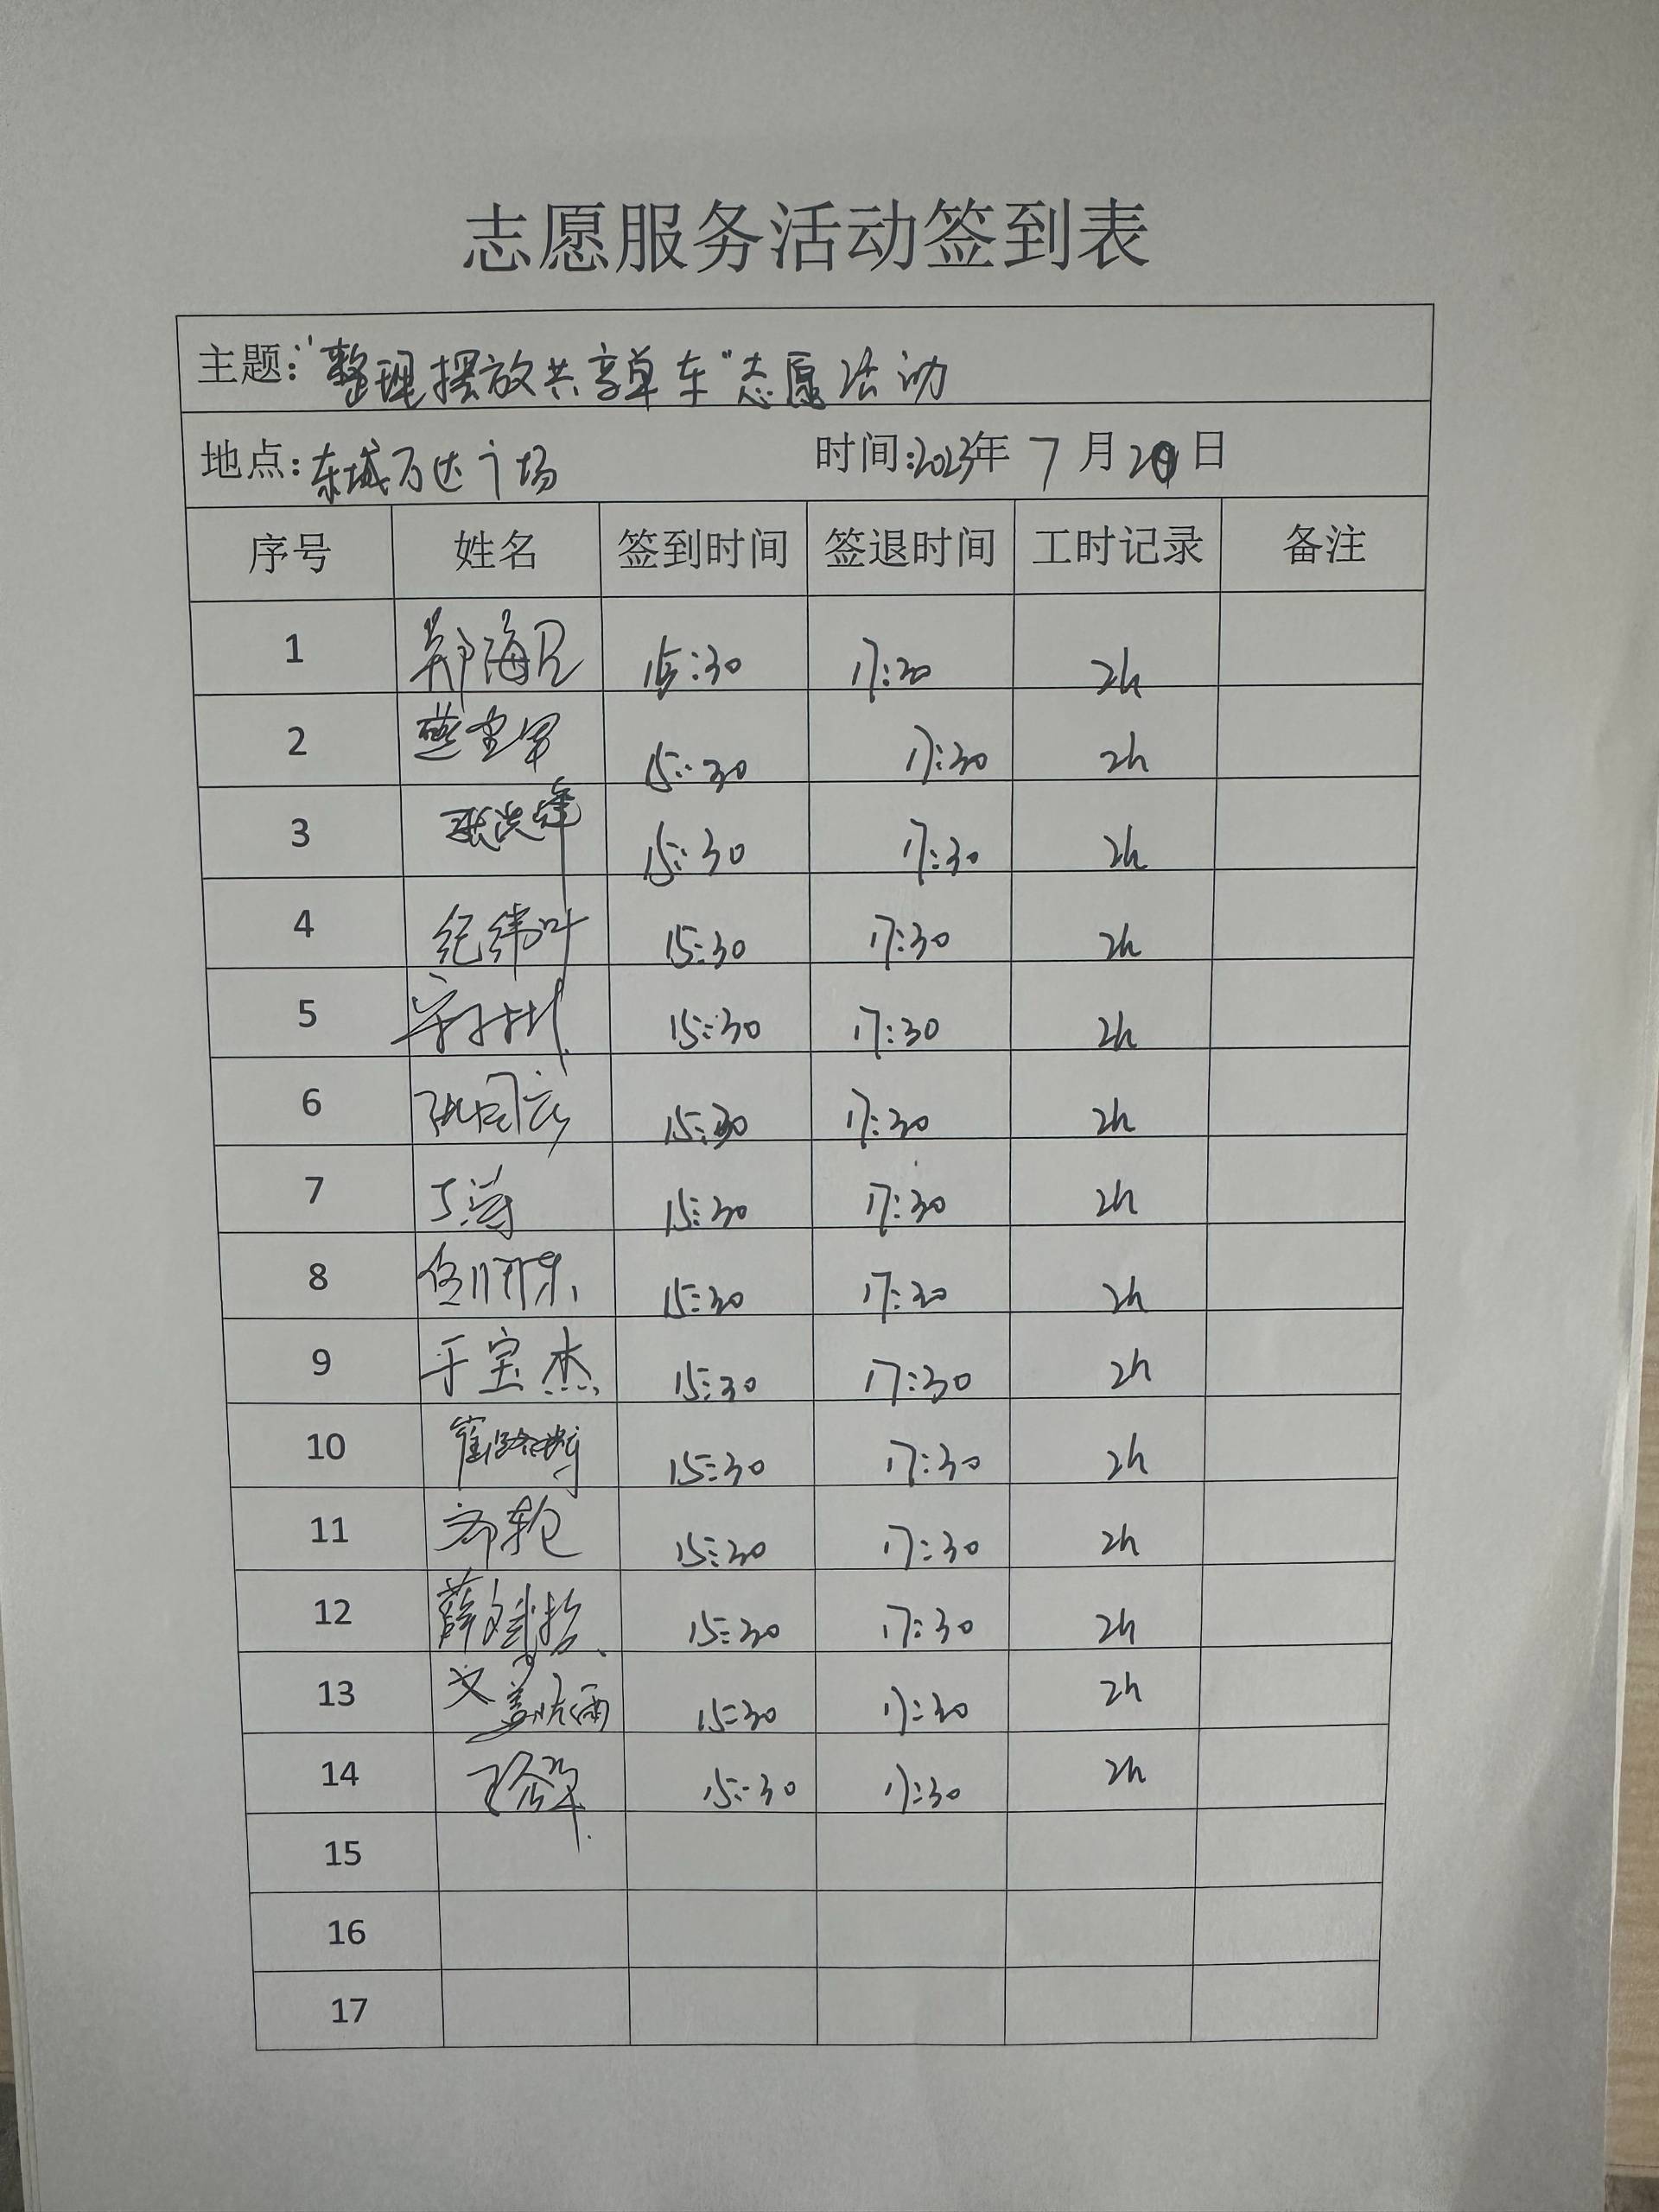 志愿服务活动签到表
主题：“整理摆放共享单车”志愿活动
地点：东城万达广场 时间：2023年 7 月 20 日
序号 姓名 签到时间 签退时间 工时记录 备注
1 郑海 15:30 17:30 2h
2 15:30 17:30 2h
3 15:30 17:30 2h
4 纪纬叶 15:30 17:30 2h
5 15:30 17:30 2h
6 15:30 17:30 2h
7 丁涛 15:30 17:30 2h
8 15:30 17:30 2h
9 于宝杰 15:30 17:30 2h
10 崔 15:30 17:30 2h
11 15:30 17:30 2h
12 薛 15:30 17:30 2h
13 15:30 17:30 2h
14 15:30 17:30 2h
15
16
17